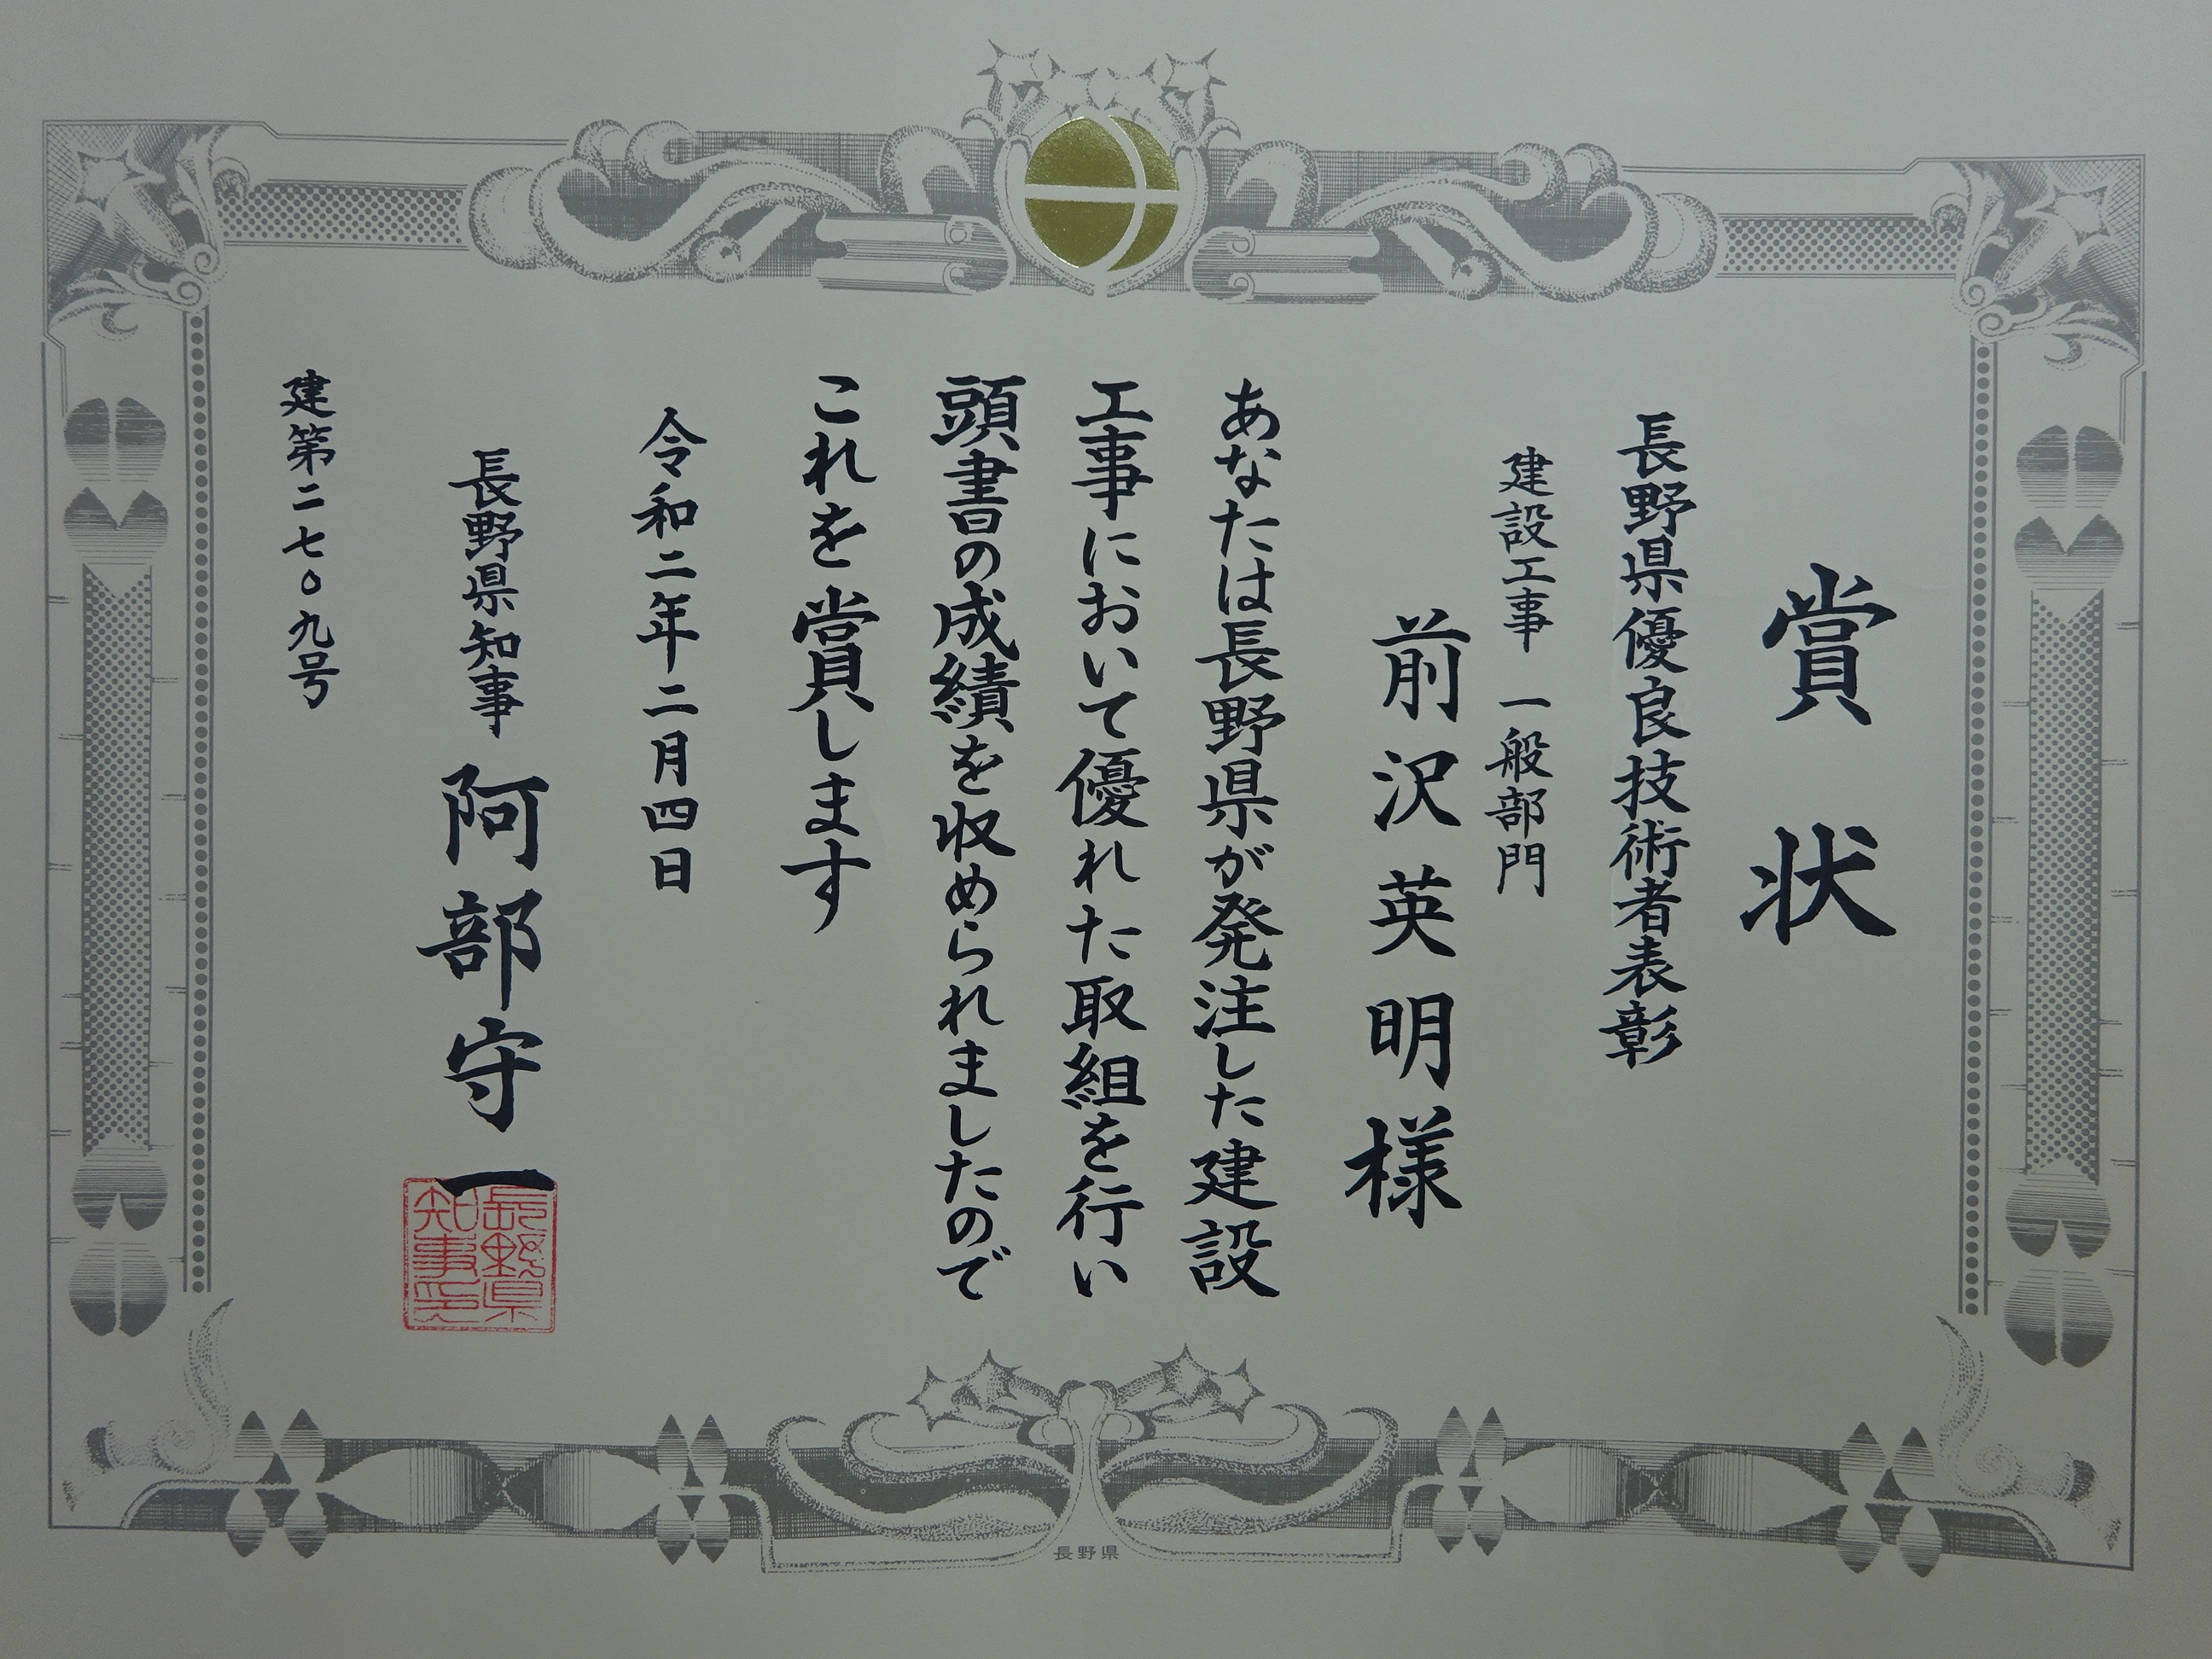 賞状
長野県優良技術者表彰
建設工事 一般部門
前沢英明様
あなたは長野県が発注した建設
工事において優れた取組を行い
頭書の成績を収められましたので
これを賞します
令和二年二月四日
長野県知事 阿部守一
長野県
知事印
建第二七〇九号
長野県